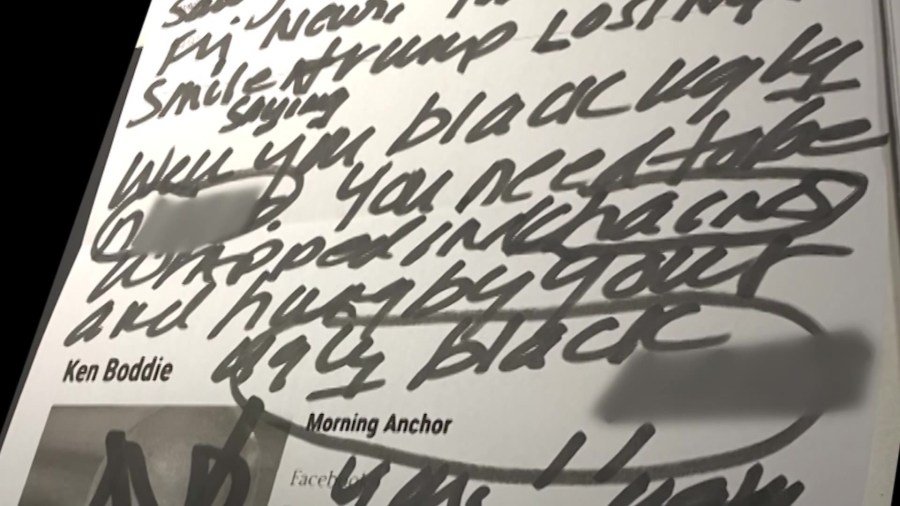 Fri News,
Smile trump Losing
saying
Well you black ugly
you need to be
wrapped in chains
and hung by your
ugly black
Ken Boddie
Morning Anchor
Facebook